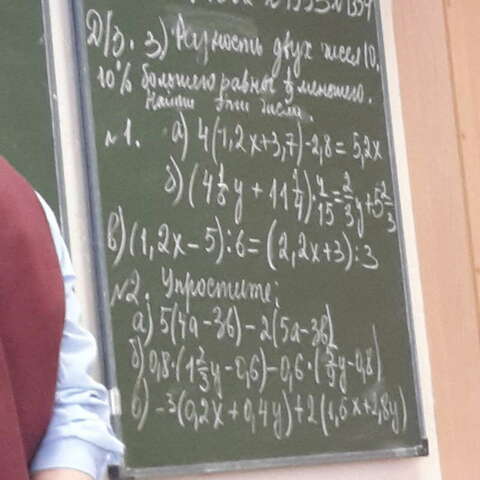 Д/З. 3) Разность двух чисел 10,
10% большего равны 1/3 меньшего.
Найти эти числа.
№1. а) 4(1,2x+3,7)-2,8=5,2x
б) (4 1/8 y + 11 1/4) · 4/15 = 2/3 y + 5 2/3
в) (1,2x-5):6=(2,2x+3):3
№2. Упростите:
а) 5(4a-3b)-2(5a-3b)
б) 0,8·(1 2/3 y-0,6)-0,6·(2/9 y-0,8)
в) -3(0,2x+0,4y)+2(1,6x+2,8y)